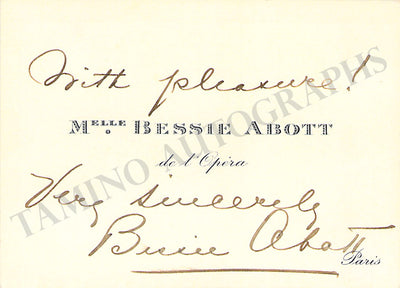 With pleasure!
Melle BESSIE ABOTT
de l'Opéra
Very sincerely
Bessie Abott
Paris
TAMINO AUTOGRAPHS